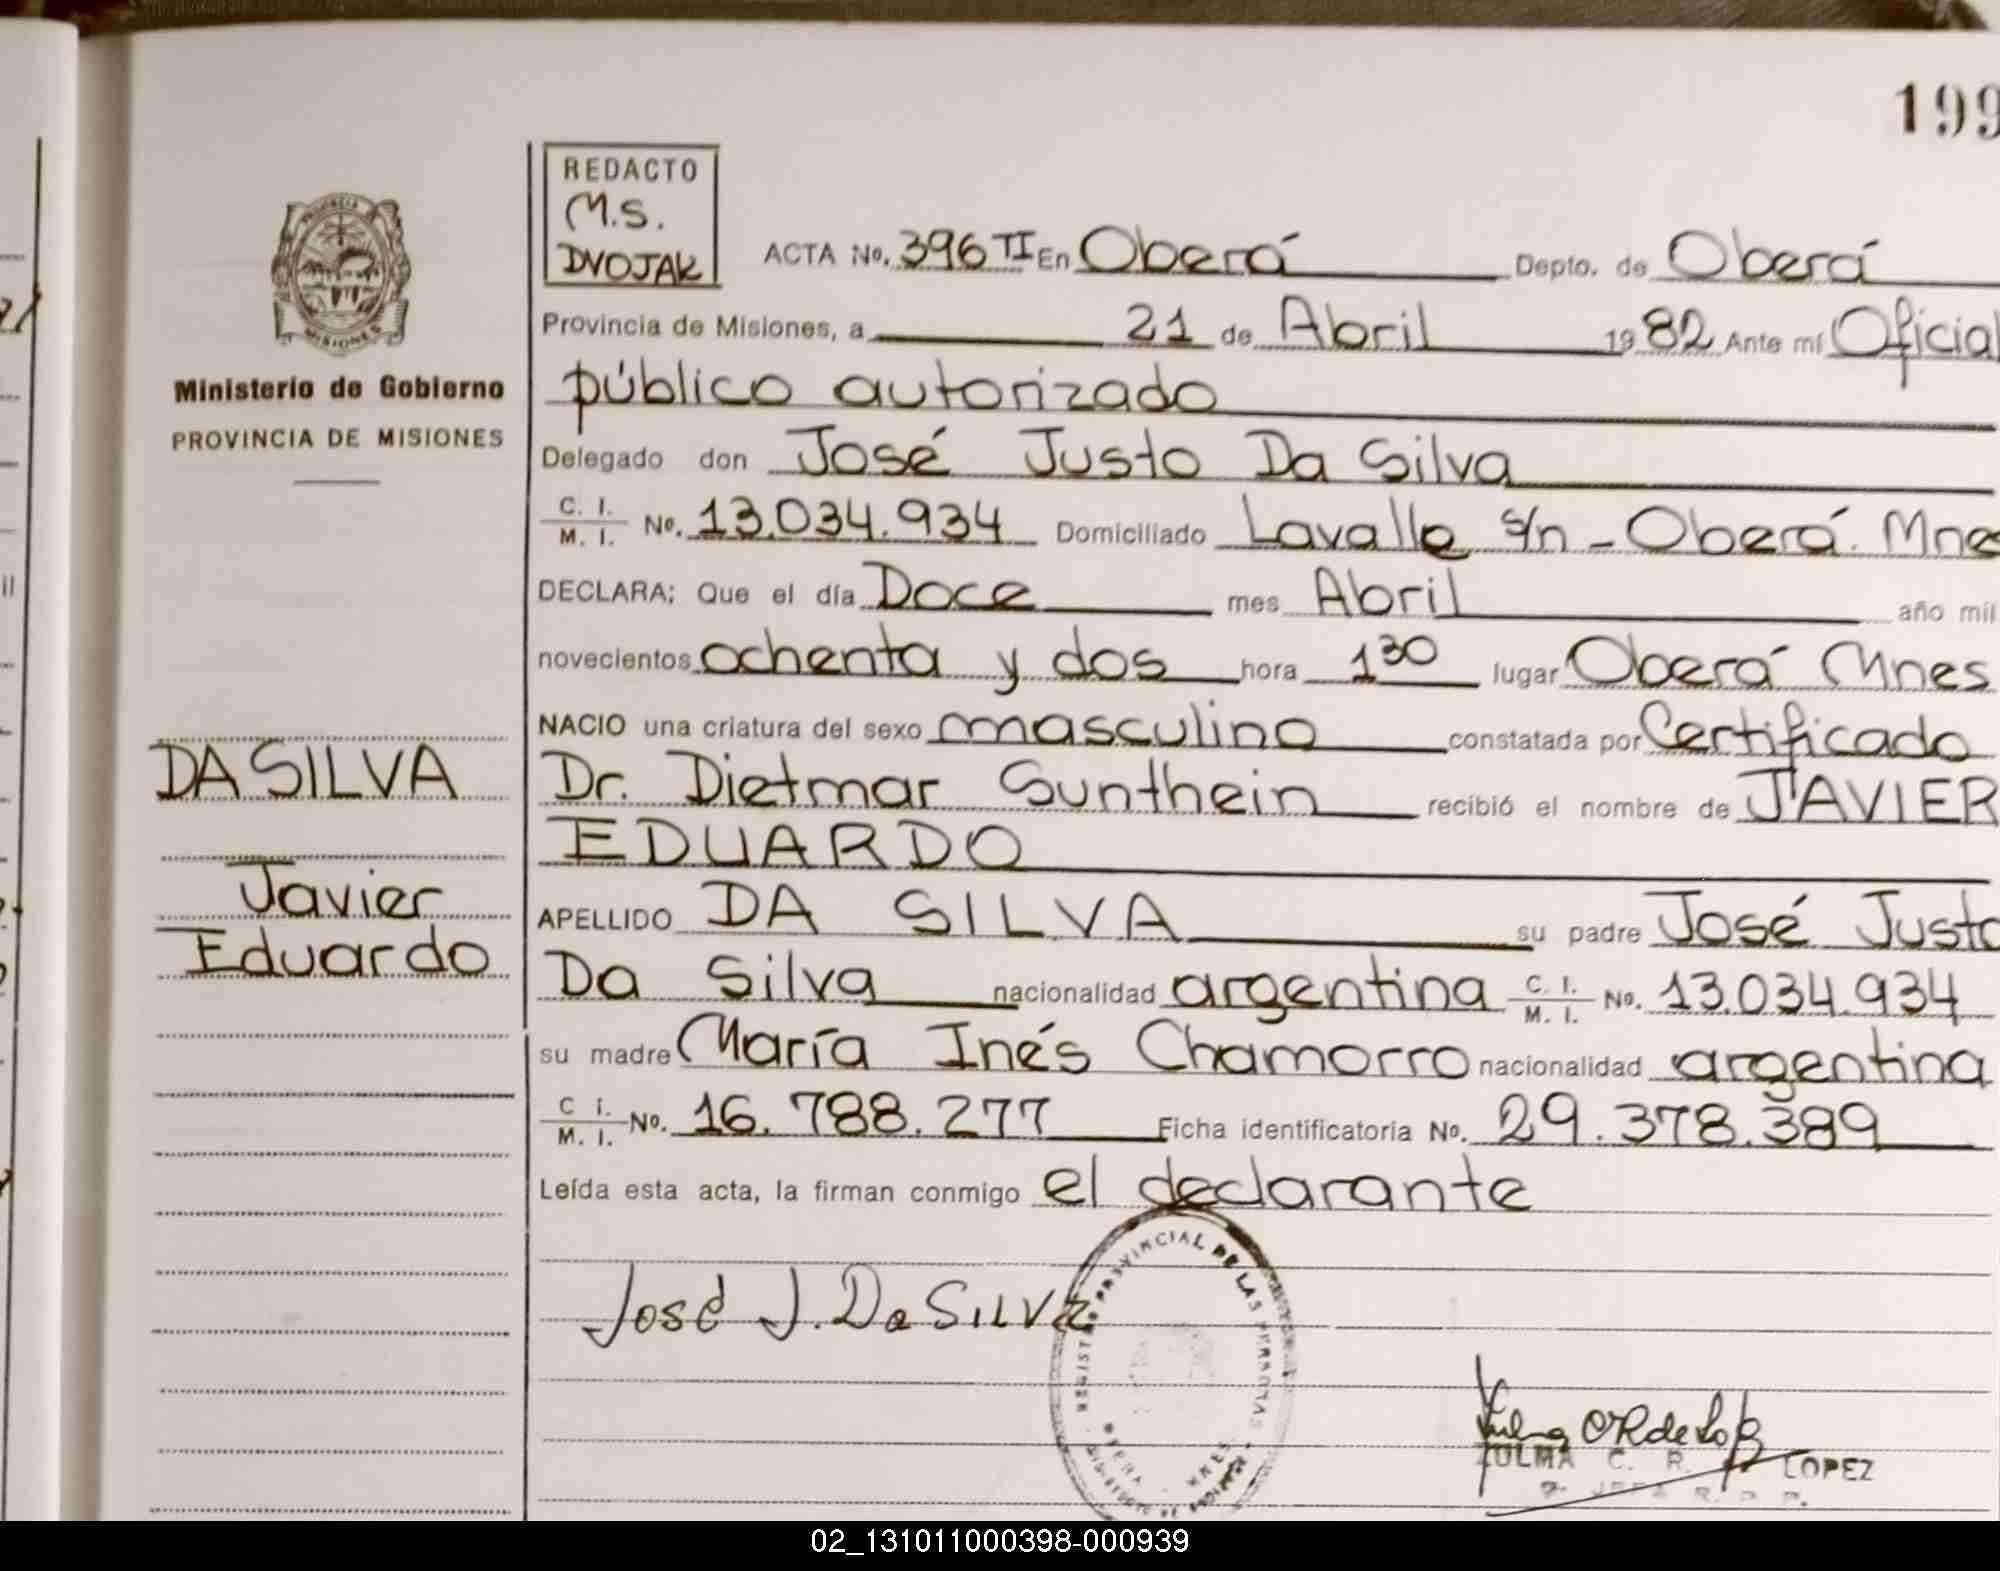 199
REDACTO
M.S.
DVOJAK
ACTA No. 396 TI En Oberá Depto. de Oberá
Provincia de Misiones, a 21 de Abril 1982 Ante mí Oficial
público autorizado
Delegado don José Justo Da Silva
C. I. M. I. No. 13.034.934 Domiciliado Lavalle s/n - Oberá. Mnes
DECLARA: Que el día Doce mes Abril año mil
novecientos ochenta y dos hora 1 30 lugar Oberá Mnes
NACIO una criatura del sexo masculino constatada por Certificado
Dr. Dietmar Sunthein recibió el nombre de JAVIER
EDUARDO
APELLIDO DA SILVA su padre José Justo
Da Silva nacionalidad argentina C. I. M. I. No. 13.034.934
su madre María Inés Chamorro nacionalidad argentina
C i. M. I. No. 16.788.277 Ficha identificatoria No. 29.378.389
Leída esta acta, la firman conmigo el declarante
José J. Da SILVA
REGISTRO PROVINCIAL DE LAS PERSONAS
ZULMA C. R. LOPEZ
PROVINCIA
MISIONES
Ministerio de Gobierno
PROVINCIA DE MISIONES
DA SILVA
Javier
Eduardo
02_131011000398-000939